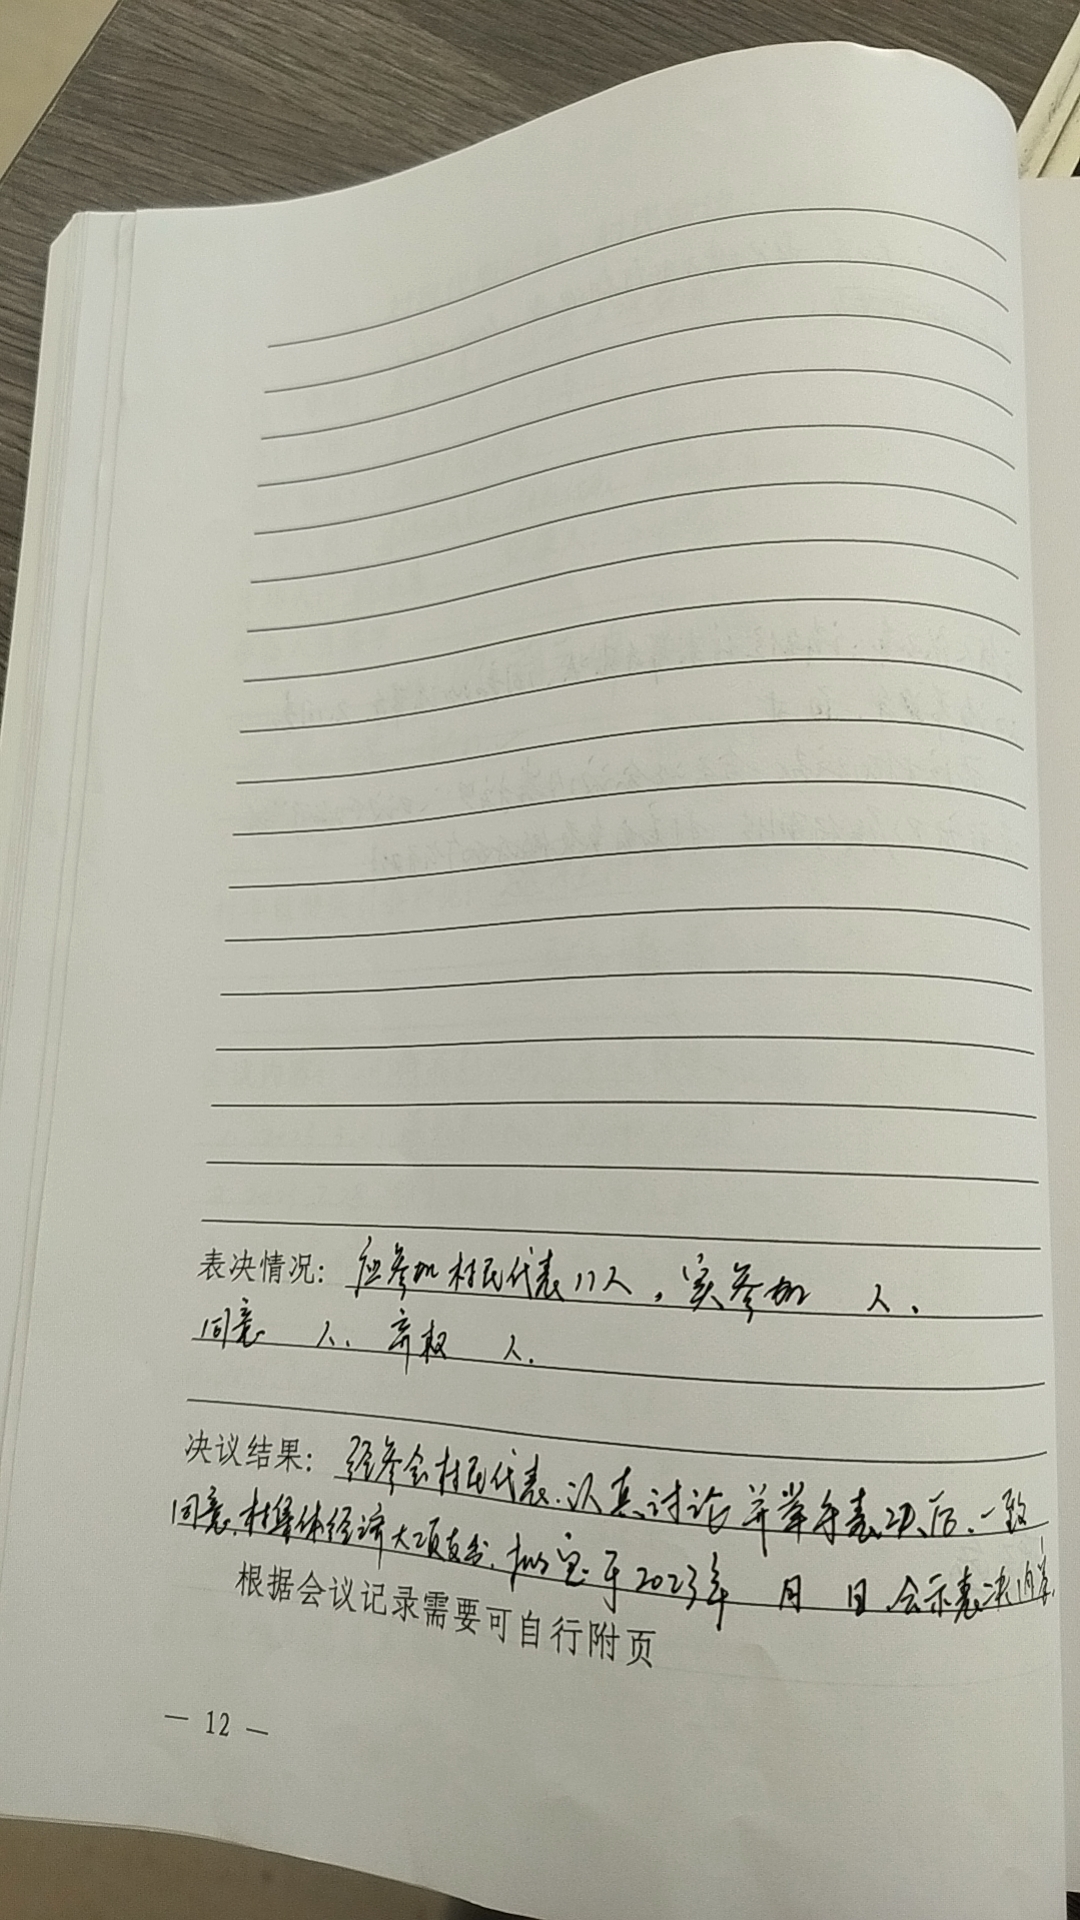 表决情况：应参加村民代表17人，实参加 人，
同意 人、弃权 人．
决议结果：经参会村民代表．认真讨论并举手表决后、一致
同意．村集体经济大项支出．拟定于2023年 月 日 公示表决内容．
根据会议记录需要可自行附页
— 12 —